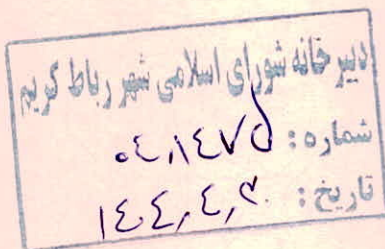 دبیرخانه شورای اسلامی شهر رباط کریم
شماره : ۰٤,۱٤۷۵
تاریخ :